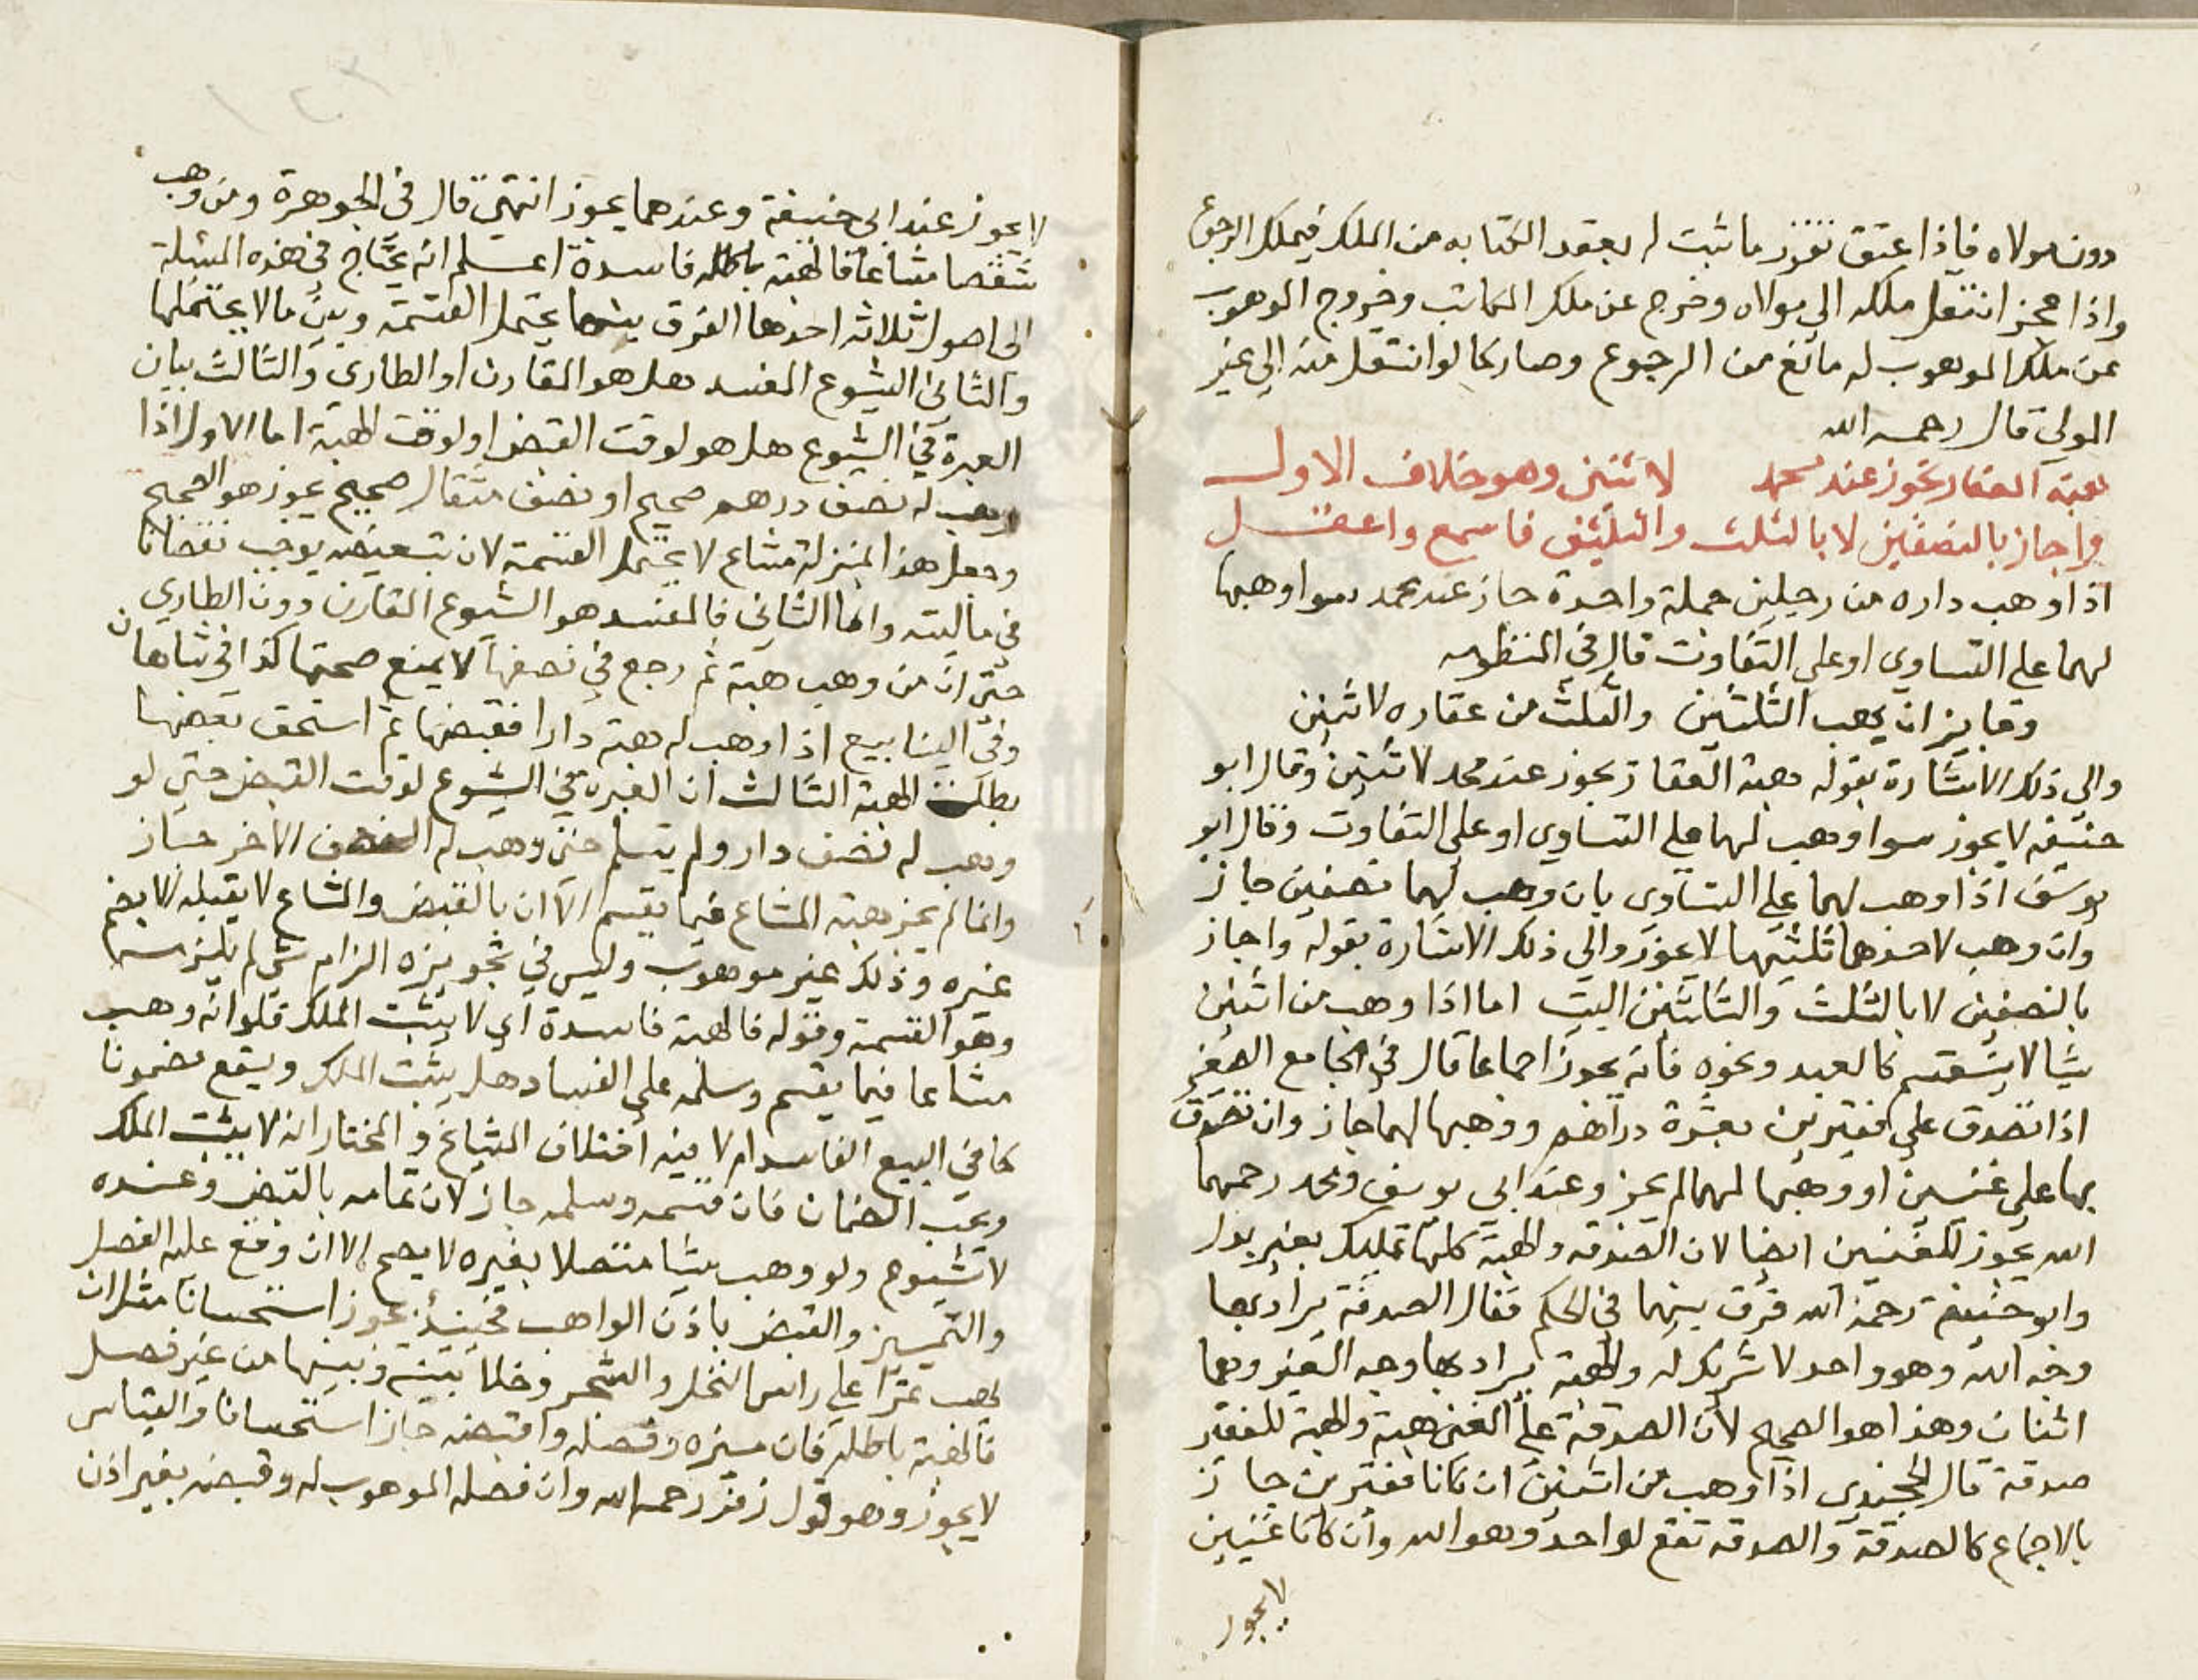 دون مولاه فاذا عتق تقرر ما ثبت له بعقد الكتابه من الملك فيملك الرجوع
واذا عجز انتقل ملكه الي مولاه وخرج عن ملك المكاتب وخروج الموهوب
عن ملك الموهوب له مانع من الرجوع وصار كما لو انتقل منه الي غير
المولي قال رحمه الله
هبة العقار تجوز عند محمد لاثنين وهو خلاف الاول
واجاز بالنصفين لا بالثلث والثلثين فاسمع واعقل
اذا وهب داره من رجلين جملة واحدة جاز عند محمد سوا وهبها
لهما علي التساوي او علي التفاوت قال في المنظومه
وجايز ان يهب الثلثين والثلث من عقاره لاثنين
والي ذلك الاشارة بقوله هبة العقار تجوز عند محمد لاثنين وقال ابو
حنيفه لا يجوز سوا وهب لهما علي التساوي او علي التفاوت وقال ابو
يوسف اذا وهب لهما علي التساوي بان وهب لهما نصفين جاز
وان وهب لاحدهما ثلثيها لا يجوز والي ذلك الاشارة بقوله واجاز
بالنصفين لا بالثلث والثلثين البيت اما اذا وهب من اثنين
شيا لا ينقسم كالعبد ونحوه فانه يجوز اجماعا قال في الجامع الصغير
اذا تصدق علي فقيرين بعشرة دراهم ووهبها لهما جاز وان تصدق
بها علي غنيين او وهبها لهما لم يجز وعند ابي يوسف ومحمد رحمهما
الله يجوز للغنيين ايضا لان الصدقه والهبة كلتاهما تمليك بغير بدل
وابو حنيفة رحمة الله فرق بينهما في الحكم فقال الصدقة يراد بها
وجه الله وهو واحد لا شريك له والهبة يراد بها وجه الغير وهما
اثنان وهذا هو الصحيح لان الصدقة علي الغني هبة والهبة للفقير
صدقة قال الخجندي اذا وهب من اثنين ان كانا فقيرين جاز
بالاجماع كالصدقة والصدقه تقع لواحد وهو الله وان كانا غنيين
لا يجوز
لا يجوز عند ابي حنيفة وعندهما يجوز انتهي قال في الجوهرة ومن وهب
شقصا مشاعا فالهبة باطله فاسدة اعلم انه يحتاج في هذه المسئلة
الي اصول ثلاثه احدها الفرق بين ما يحتمل القسمة وبين ما لا يحتملها
والثاني الشيوع المفسد هل هو المقارن او الطاري والثالث بيان
العبرة في الشيوع هل هو لوقت القبض او لوقت الهبة اما الاول اذا
وهب له نصف درهم صحيح او نصف مثقال صحيح يجوز هو الصحيح
وجعل هذا بمنزلة مشاع لا يحتمل القسمة لان تبعيضه يوجب نقصانا
في ماليته واما الثاني فالمفسد هو الشيوع المقارن دون الطاري
حتي ان من وهب هبة ثم رجع في نصفها لا يمنع صحتها كذا في شاهان
وفي الينابيع اذا وهب له هبة دارا فقبضها ثم استحق بعضها
بطلت الهبة الثالث ان العبرة في الشيوع لوقت القبض حتي لو
وهب له نصف دار ولم يسلم حتي وهب له النصف الاخر جاز
وانما لم يجز هبة المشاع فيما يقسم الا ان بالقبض والمشاع لا يقبله الا بضم
غيره وذلك غير موهوب وليس في تجويزه الزام شي لم يلتزمه
وهو القسمة وقوله فالهبة فاسدة اي لا يثبت الملك فلو انه وهب
مشاعا فيما يقسم وسلمه علي الفساد هل يثبت الملك ويقع مضمونا
كما في البيع الفاسد ام لا فيه اختلاف المشايخ والمختار انه لا يثبت الملك
ويجب الضمان فان قسمه وسلمه جاز لان تمامه بالقبض وعنده
لا شيوع ولو وهب شيا متصلا بغيره لا يصح الا ان وقع عليه الفصل
والتمييز والقبض باذن الواهب فحينئذ يجوز استحسانا مثل ان
يهب تمرا علي راس النخل والشجر وخلا بينه وبينها من غير فصل
فالهبة باطله فان ميزه وفصله واقبضه جاز استحسانا والقياس
لا يجوز وهو قول زفر رحمه الله وان فصله الموهوب له وقبضه بغير اذن